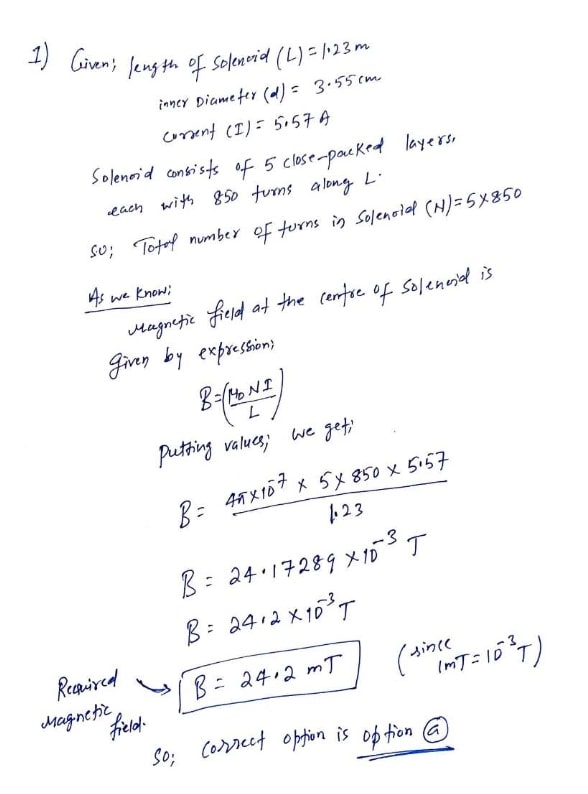 1) Given; length of Solenoid (L) = 1.23 m
inner Diameter (d) = 3.55 cm
current (I) = 5.57 A
Solenoid consists of 5 close-packed layers,
each with 850 turns along L.
So; Total number of turns in Solenoid (N) = 5×850
As we know;
Magnetic field at the centre of Solenoid is
given by expression;
B = (μ₀NI/L)
Putting values; we get;
B = 4π×10⁻⁷ × 5×850 × 5.57 / 1.23
B = 24.17289 × 10⁻³ T
B = 24.2 × 10⁻³ T
B = 24.2 mT (since 1mT = 10⁻³ T)
Required Magnetic field.
So; correct option is option ⓐ